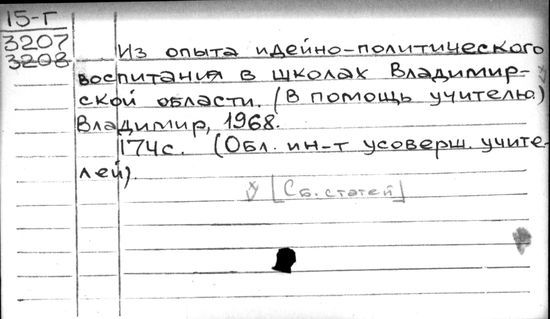 15-Г
3207
3208
Из опыта идейно-политического
воспитания в школах Владимир-
ской области. (В помощь учителю)
Владимир, 1968.
174с. (Обл. ин-т усоверш. учите-
лей).
[Сб. статей]